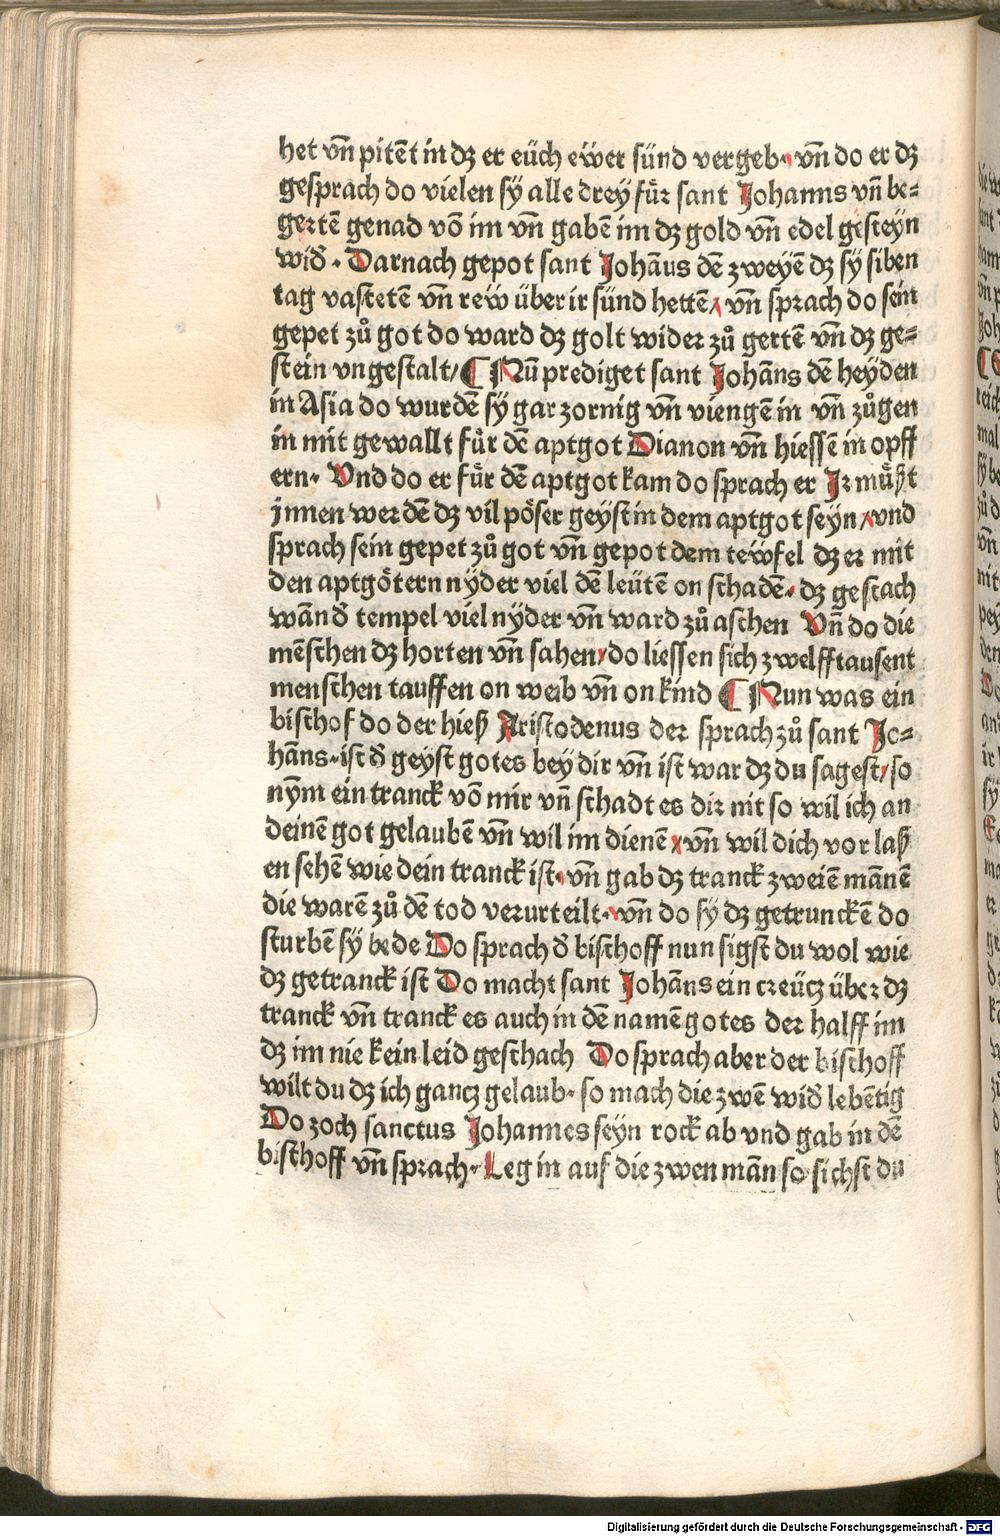 het vn̄ pitēt in dʒ er eüch ewer sünd vergeb· vn̄ do er dʒ
gesprach do vielen sÿ alle drey fuͤr sant Johanns vn̄ be⸗
gertē genad vō im vn̄ gabē im dʒ gold vn̄ edel gesteyn
wid̄· Darnach gepot sant Johāus dē zweyē dʒ sÿ siben
tag vastetē vn̄ rew über ir sünd hettē/ vn̄ sprach do sein
gepet zů got do ward dʒ golt wider zů gertē vn̄ dʒ ge⸗
stein vngestalt/ ¶ Nū prediget sant Johāns dē heyden
in Asia do wurdē sÿ gar zornig vn̄ viengē in vn̄ zůgen
in mit gewallt fuͤr dē aptgot Dianon vn̄ hiessē in opff
ern· Vnd do er fuͤr dē aptgot kam do sprach er Ir muͤßt
jnnen werdē dʒ vil poͤser geyst in dem aptgot seyn/ vnd
sprach sein gepet zů got vn̄ gepot dem tewfel dʒ er mit
den aptgoͤtern nÿder viel dē leütē on schadē· dʒ gescach
wān d̄ tempel viel nÿder vn̄ ward zů aschen Vn̄ do die
mēschen dʒ horten vn̄ sahen/ do liessen sich zwelfftausent
menschen tauffen on weib vn̄ on kind ¶ Nun was ein
bischof do der hieß Aristodenus der sprach zů sant Jo⸗
hāns· ist d̄ geyst gotes bey dir vn̄ ist war dʒ du sagest/ so
nÿm ein tranck vō mir vn̄ schadt es dir nit so wil ich an
deinē got gelaubē vn̄ wil im dienē/ vn̄ wil dich vor laß
en sehē wie dein tranck ist· vn̄ gab dʒ tranck zweiē mānē
die warē zů dē tod verurteilt· vn̄ do sÿ dʒ getrunckē do
sturbē sÿ bede Do sprach d̄ bischoff nun sigst du wol wie
dʒ getranck ist Do macht sant Johāns ein creücz über dʒ
tranck vn̄ tranck es auch in dē namē gotes der halff im
dʒ im nie kein leid geschach Do sprach aber der bischoff
wilt du dʒ ich gancz gelaub· so mach die zwē wid̄ lebētig
Do zoch sanctus Johannes seyn rock ab vnd gab in dē
bischoff vn̄ sprach· Leg in auf die zwen mān so sichst du
Digitalisierung gefördert durch die Deutsche Forschungsgemeinschaft - DFG